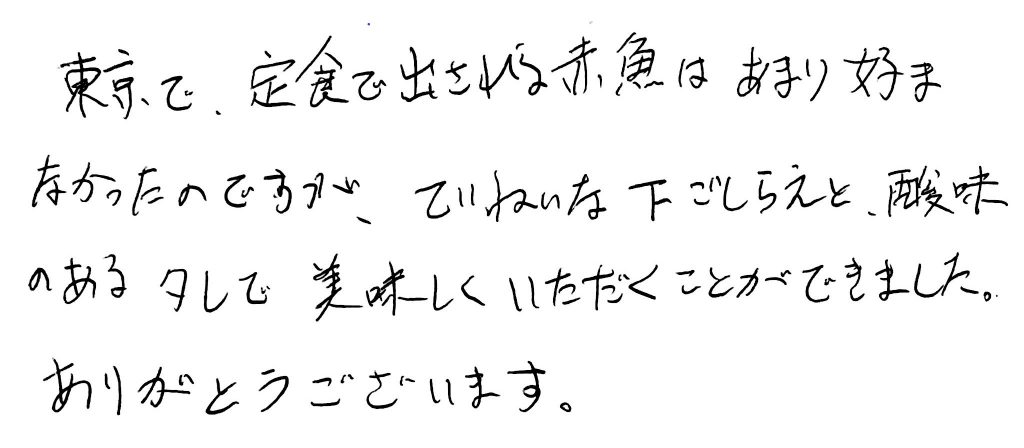 東京で、定食で出される赤魚は あまり好ま
なかったのですが、ていねいな下ごしらえと、酸味
のあるタレで美味しくいただくことができました。
ありがとうございます。